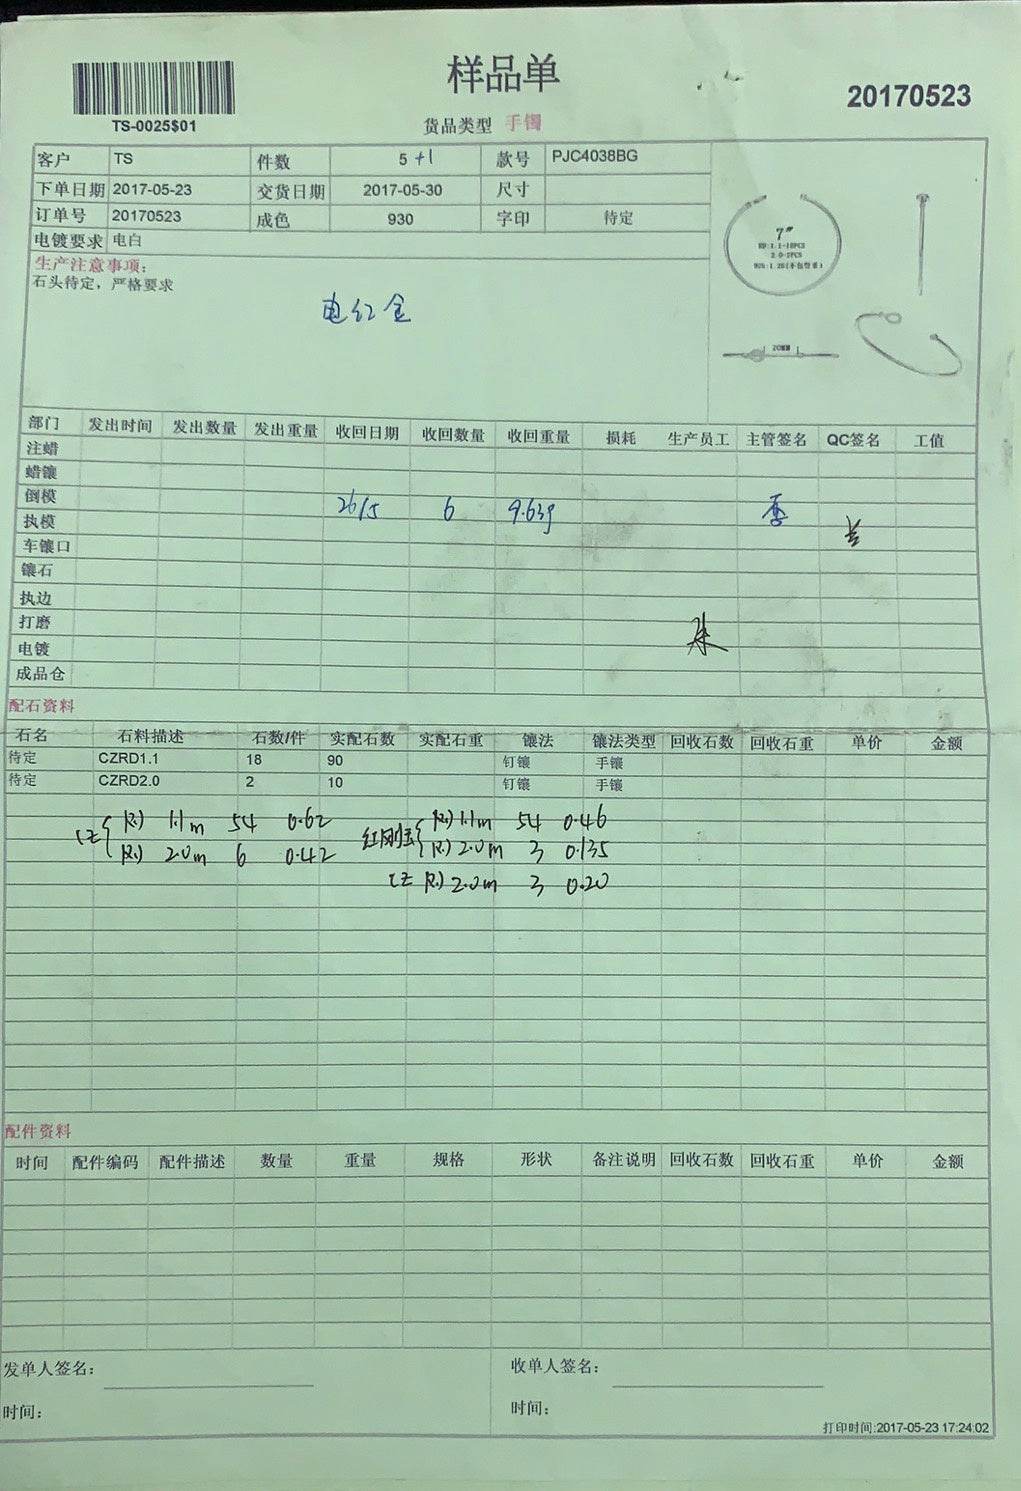 样品单
TS-0025$01
货品类型 手镯
20170523
客户 TS 件数 5 +1 款号 PJC4038BG
下单日期 2017-05-23 交货日期 2017-05-30 尺寸
订单号 20170523 成色 930 字印 待定
电镀要求 电白
生产注意事项:
石头待定，严格要求
电红金
7"
20MM
部门 发出时间 发出数量 发出重量 收回日期 收回数量 收回重量 损耗 生产员工 主管签名 QC签名 工值
注蜡
蜡镶
倒模 26/5 6 9.63g
执模
车镶口
镶石
执边
打磨
电镀
成品仓
配石资料
石名 石料描述 石数/件 实配石数 实配石重 镶法 镶法类型 回收石数 回收石重 单价 金额
待定 CZRD1.1 18 90 钉镶 手镶
待定 CZRD2.0 2 10 钉镶 手镶
CZ { R) 1.1m 54 0.62 红刚玉 { R) 1.1m 54 0.46
R) 2.0m 6 0.42 R) 2.0m 3 0.135
CZ R) 2.0m 3 0.20
配件资料
时间 配件编码 配件描述 数量 重量 规格 形状 备注说明 回收石数 回收石重 单价 金额
发单人签名: 收单人签名:
时间: 时间:
打印时间:2017-05-23 17:24:02